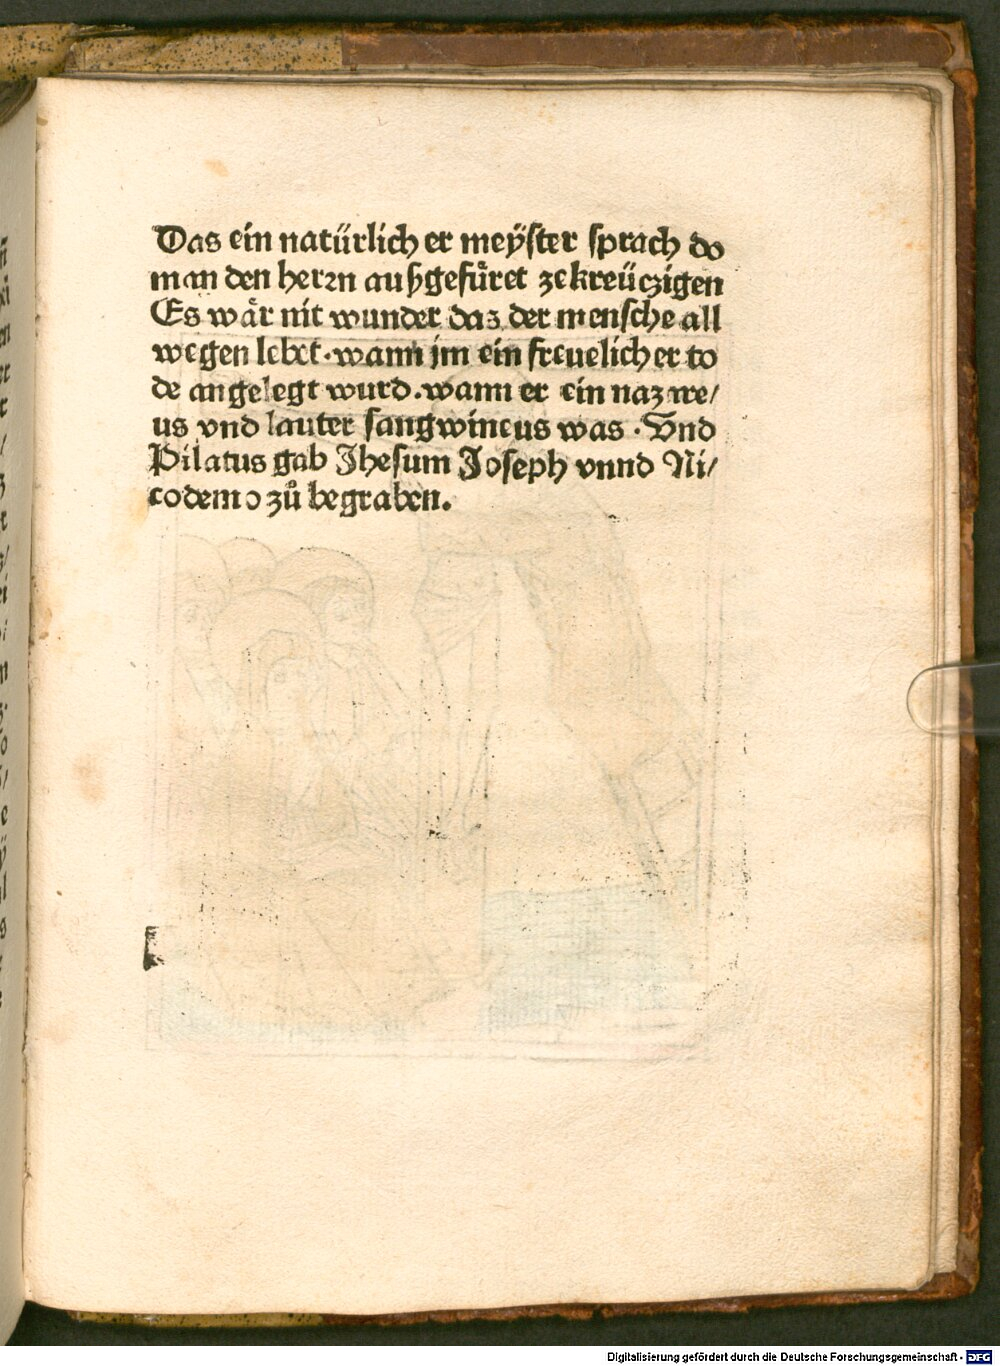 Das ein natürlicher meÿster sprach do
man den herꝛn außgefuͤret ze kreüczigen
Es waͤr nit wunder daz der mensche all
wegen lebet·wann jm ein freuelicher to
de angelegt wurd.wann er ein nazwe/
us vnd lauter sangwineus was·Vnd
Pilatus gab Jhesum Joseph vnnd Ni/
codemo zuͦ begraben.
Digitalisierung gefördert durch die Deutsche Forschungsgemeinschaft - DFG